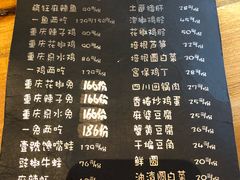 疯狂麻辣鱼 90元/份
一鱼两吃 120/150元/份
重庆辣子鸡 90元/份
重庆花椒鸡 90元/份
重庆泉水鸡 86元/份
一鸡两吃 129元/份
重庆花椒兔 166元/份
重庆辣子兔 166元/份
重庆泉水兔 166元/份
一兔两吃 186元/份
馋嘴蛙 129元/份
豉椒牛蛙 120元/份
麻辣虾
土匪猪肝 28元/份
泡椒鸡胗
花椒鸡胗
培根笋 32元/份
培根圆白菜 30元/份
宫保鸡丁 28元/份
四川回锅肉 27元/份
香椿炒鸡蛋 27元/份
麻婆豆腐 24元/份
蟹黄豆腐 30元/份
干煸豆角 24元/份
鲜圆 20元/份
油渣圆白菜 26元/份